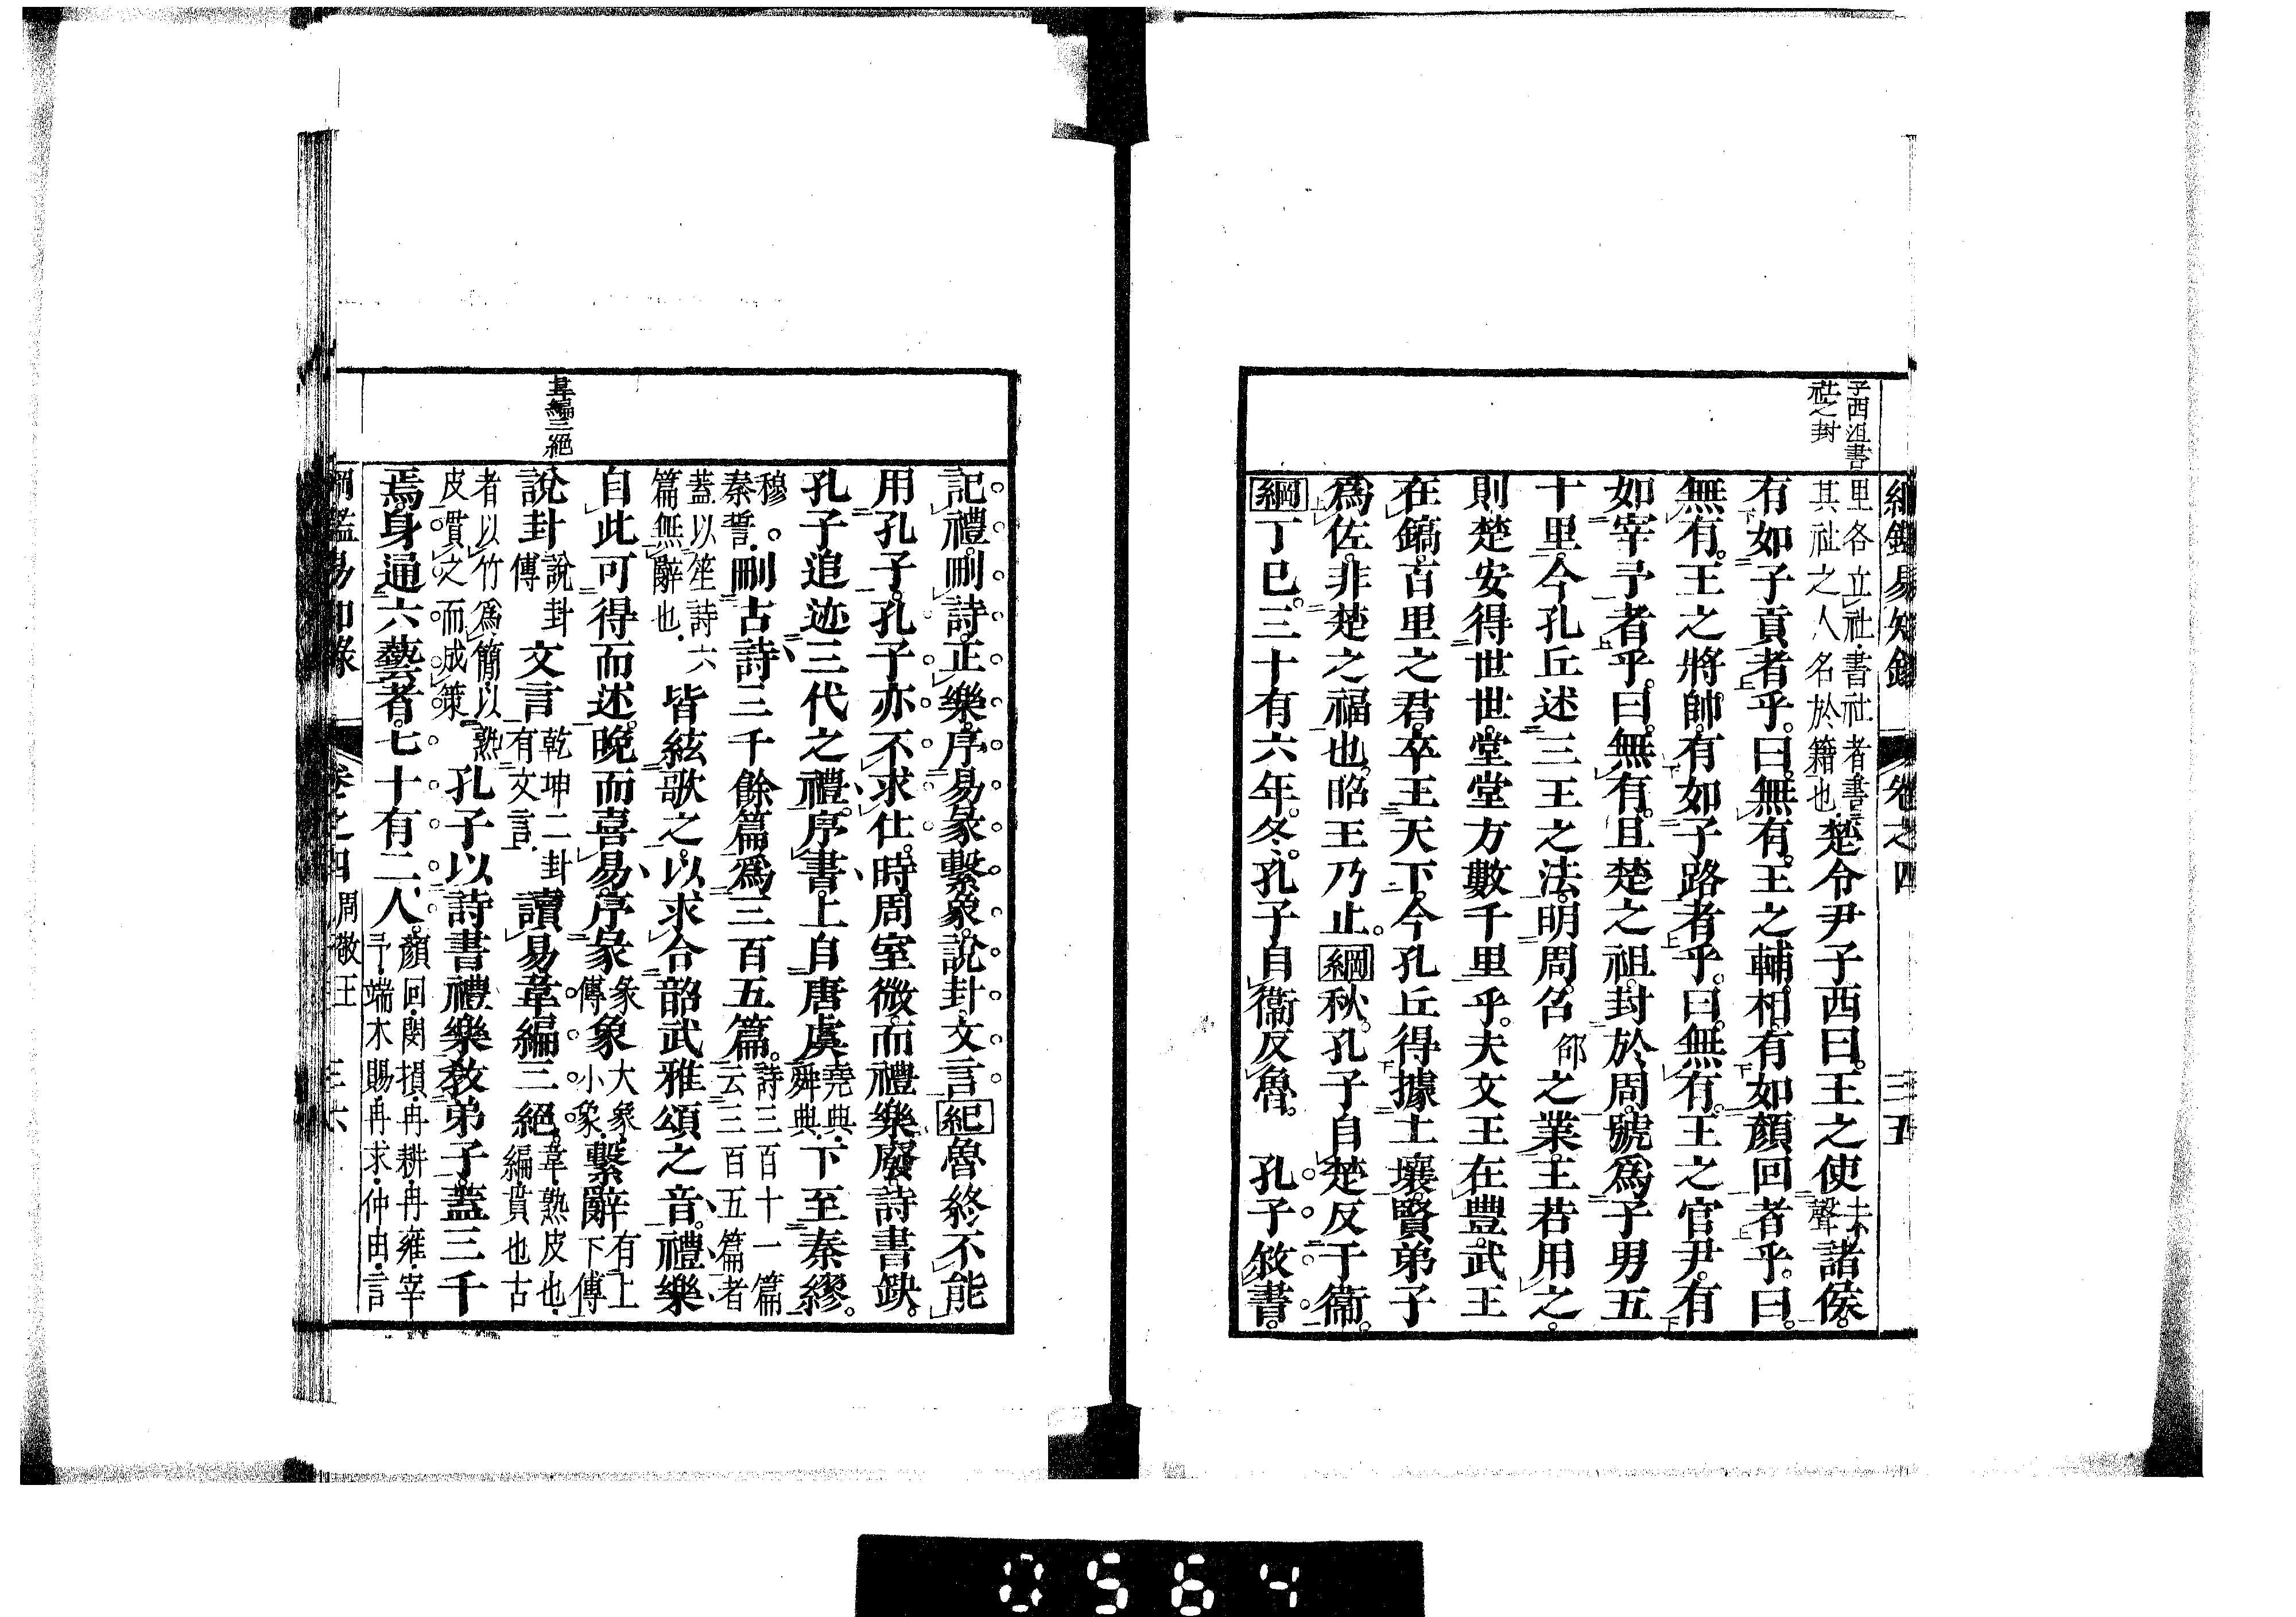 綱鑑易知錄 卷之四 三五
子西沮書
社之封
里各立社書社者書
其社之人名於籍也楚令尹子西曰王之使去聲諸侯
有如子貢者乎曰無有王之輔相有如顏回者乎曰
無有王之將帥有如子路者乎曰無有王之官尹有
如宰予者乎曰無有且楚之祖封於周號爲子男五
十里今孔丘述三王之法明周召邵之業王若用之
則楚安得世世堂堂方數千里乎夫文王在豐武王
在鎬百里之君卒王天下今孔丘得據土壤賢弟子
爲佐非楚之福也昭王乃止綱秋孔子自楚反于衞
綱丁巳三十有六年冬孔子自衞反魯 孔子敘書
記禮刪詩正樂序易彖繫象說卦文言紀魯終不能
用孔子孔子亦不求仕時周室微而禮樂廢詩書缺
孔子追迹三代之禮序書上自唐虞堯典舜典下至秦繆
穆秦誓刪古詩三千餘篇爲三百五篇詩三百十一篇云三百五篇者
蓋以笙詩六篇無辭也皆絃歌之以求合韶武雅頌之音禮樂
自此可得而述晚而喜易序彖彖傳象大象小象繫辭有上下傳
韋編三絕
說卦說卦傳文言乾坤二卦有文言讀易韋編三絕韋熟皮也編貫也古
者以竹爲簡以熟皮貫之而成策孔子以詩書禮樂敎弟子蓋三千
焉身通六藝者七十有二人顏回閔損冉耕冉雍宰予端木賜冉求仲由言
綱鑑易知錄 卷之四 周敬王 三六
0564